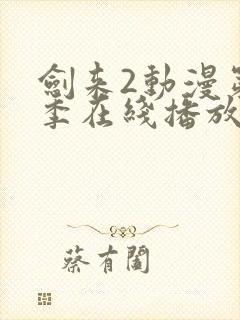 劍來2動漫第
季在綫播放
蔡有闔